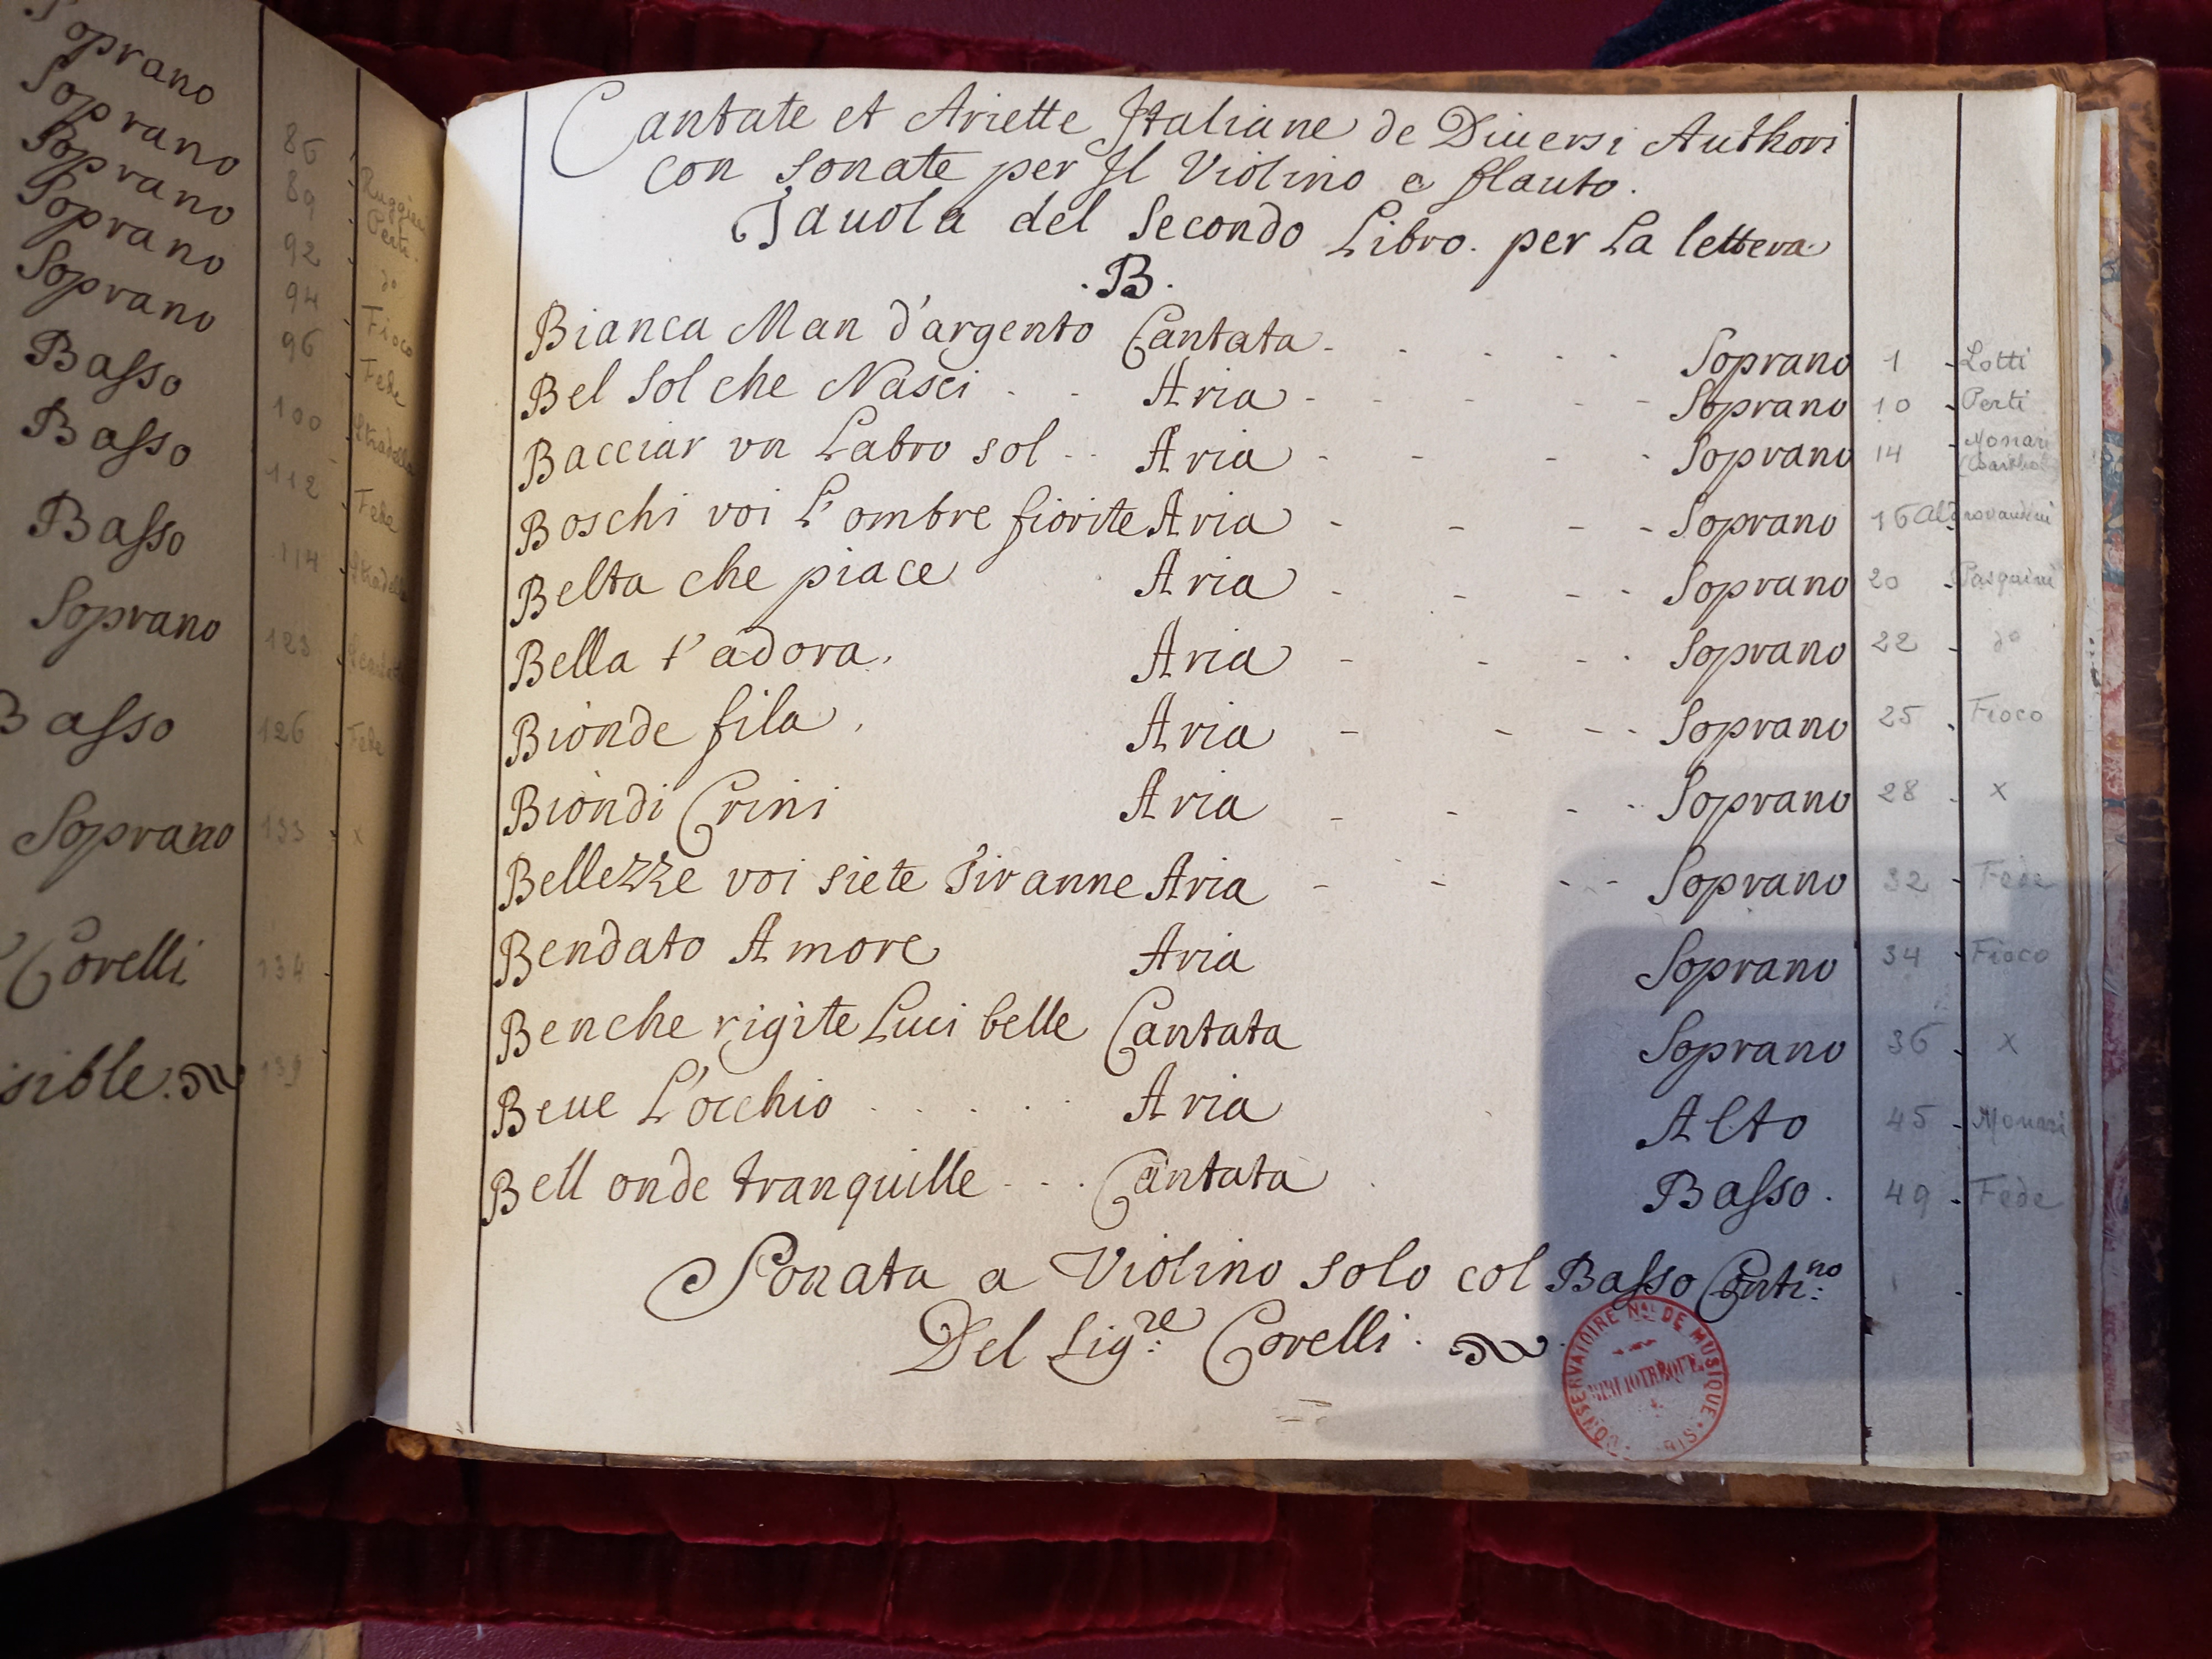 Soprano
Soprano 86 Ruggieri
Soprano 89 Perti
Soprano 92 do
Soprano 94 Fioco
Basso 96 Fede
Basso 100 Stradella
Basso 112 Fede
114 Stradella
Soprano 123
Basso 126 Fede
Soprano 133 x
Corelli 134
sible. 139
Cantate et Ariette Italiane de Diuersi Authori
con sonate per Il Violino e flauto.
Tauola del Secondo Libro. per La lettera
.B.
Bianca Man d'argento Cantata Soprano 1 Lotti
Bel sol che Nasci Aria Soprano 10 Perti
Bacciar vn Labro sol Aria Soprano 14 Monari
Boschi voi L'ombre fiorite Aria Soprano 16 Aldrovandini
Belta che piace Aria Soprano 20 Pasquini
Bella t'adora. Aria Soprano 22 do
Bionde fila. Aria Soprano 25 Fioco
Biondi Crini Aria Soprano 28 x
Bellezze voi siete Tiranne Aria Soprano 32 Fede
Bendato Amore Aria Soprano 34 Fioco
Benche rigite Luci belle Cantata Soprano 36 x
Beue L'occhio Aria Alto 45 Monari
Bell onde tranquille Cantata Basso. 49 Fede
Sonata a Violino solo col Basso Conti:no
Del Sig:re Corelli.
CONSERVATOIRE Nal DE MUSIQUE
BIBLIOTHÈQUE